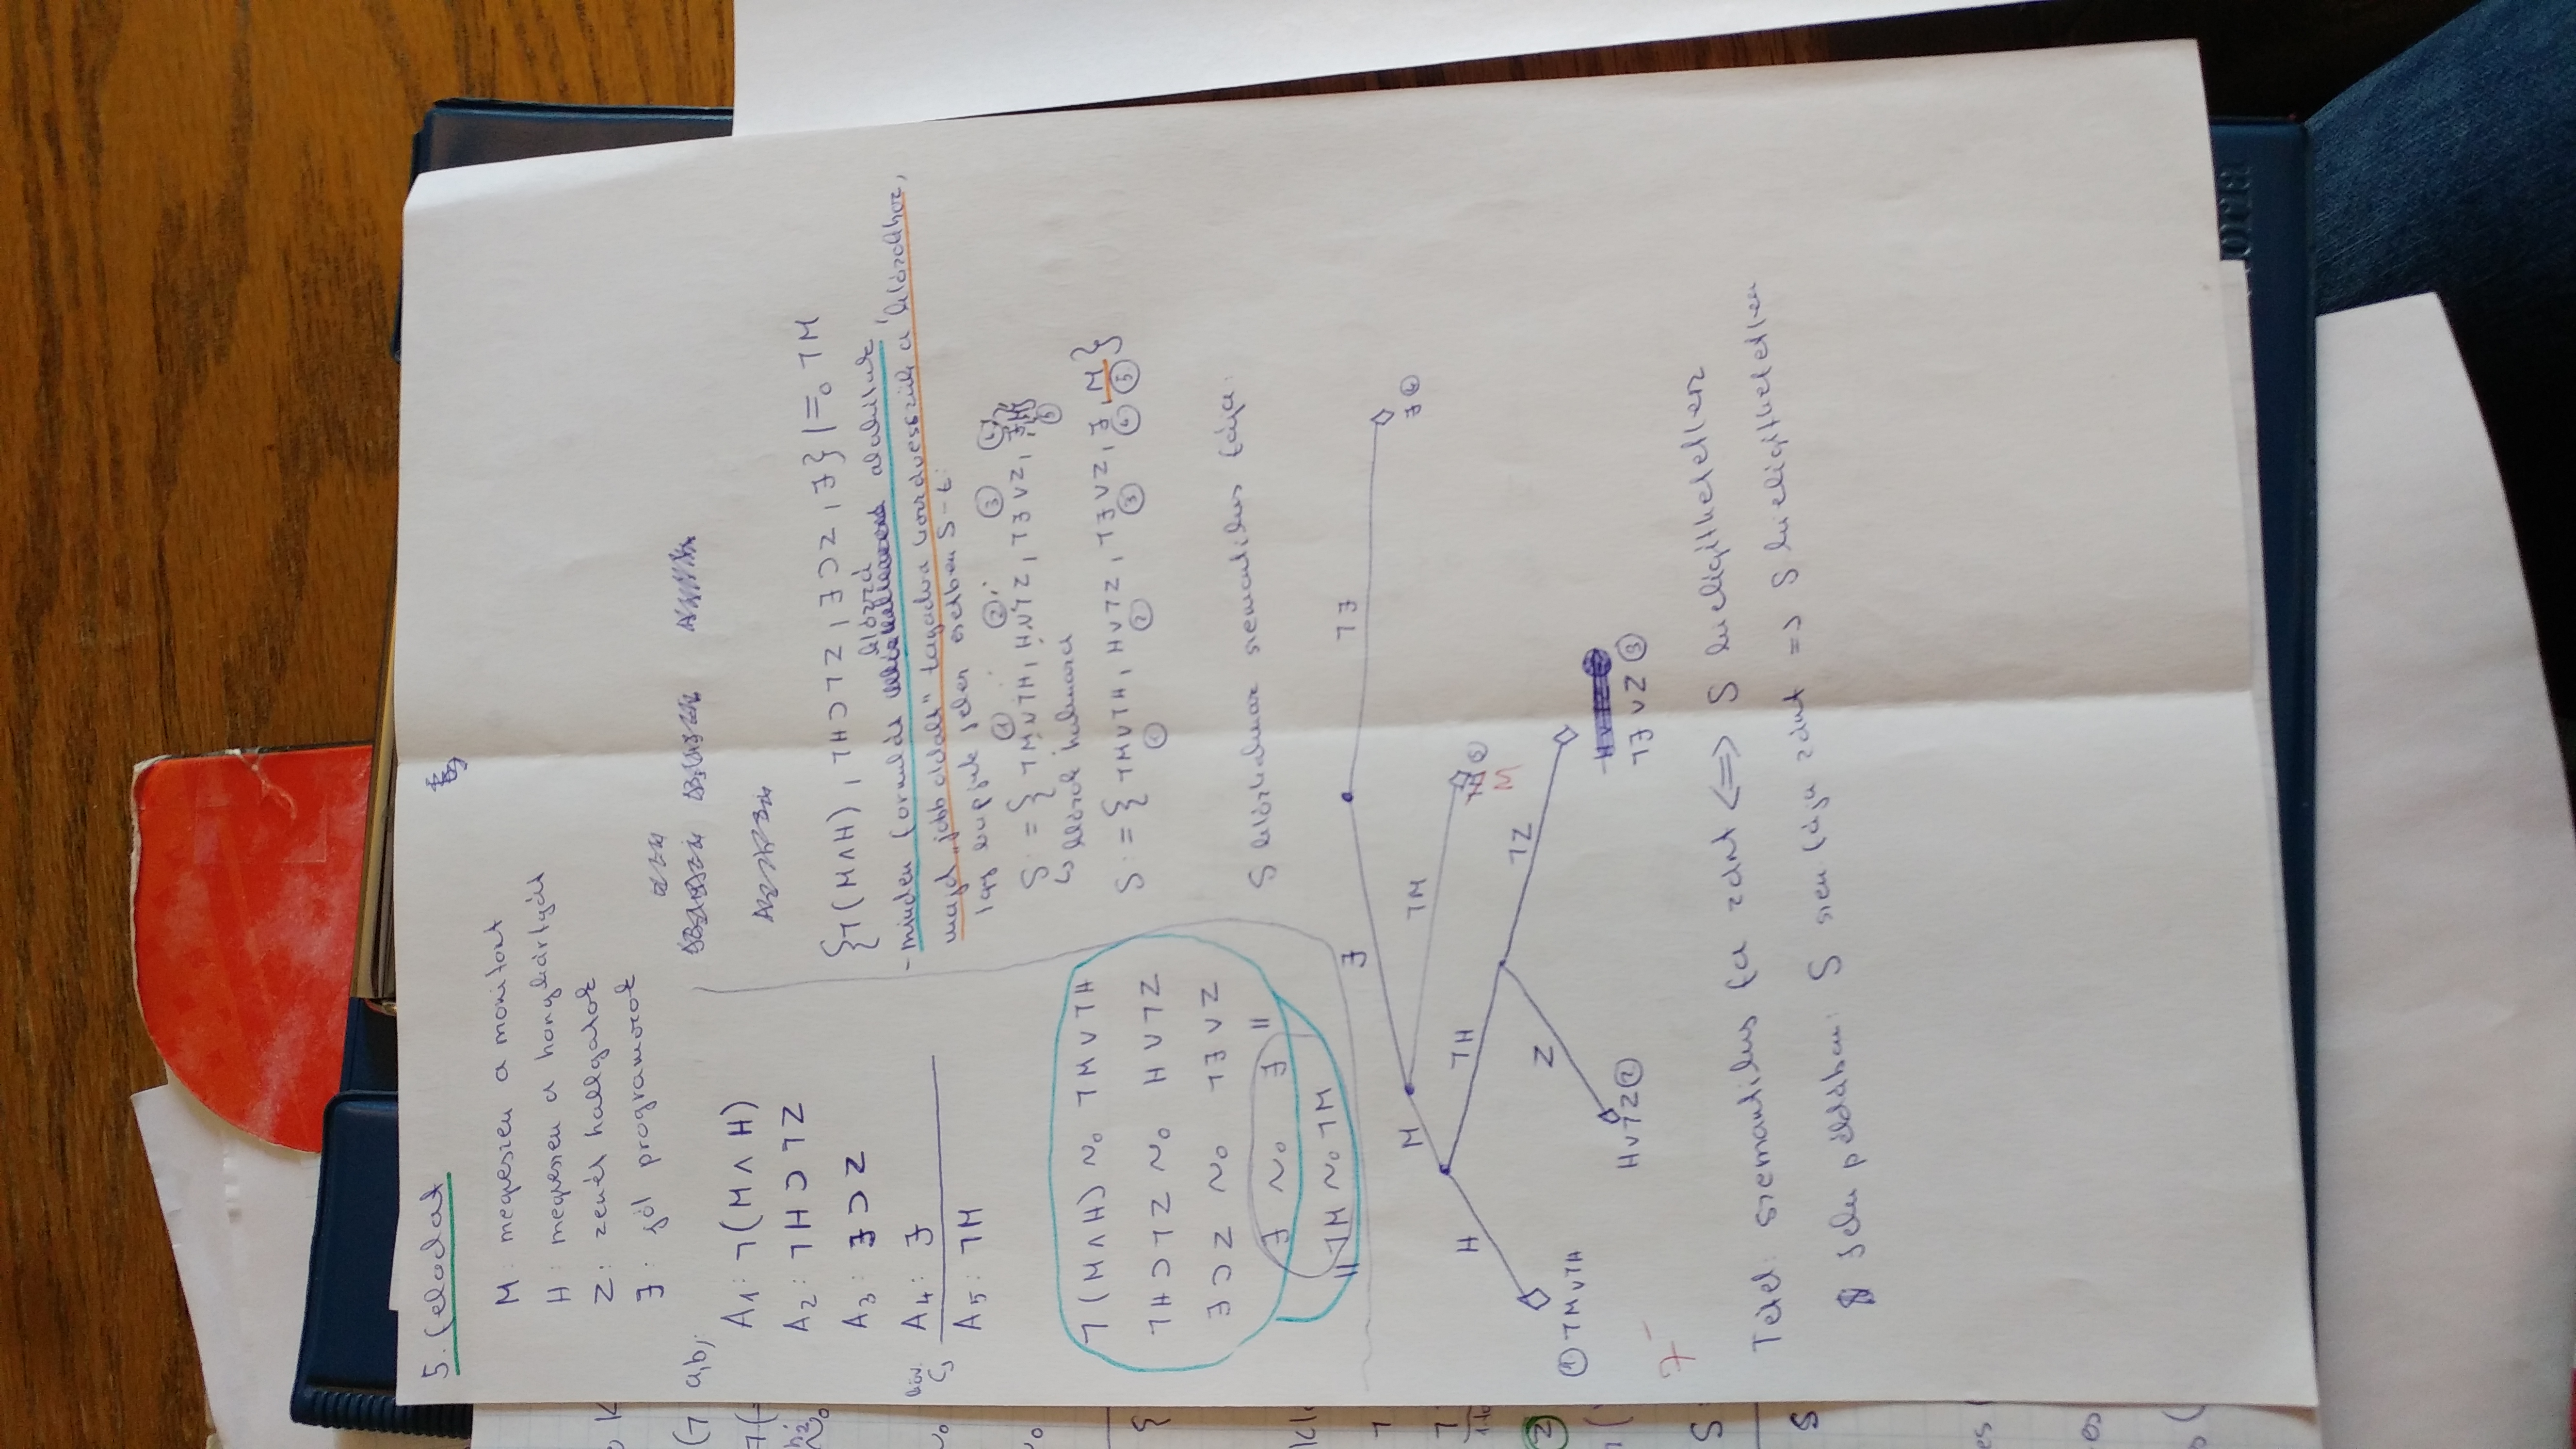 5. feladat
M: megveszem a monitort
H: megveszem a hangkártyát
Z: zenét hallgatok
J: jól programozok
a,b,
A1: ¬(M ∧ H)
A2: ¬H ⊃ ¬Z
A3: J ⊃ Z
A4: J
A5: ¬M
¬(M∧H) ~₀ ¬M∨¬H
¬H⊃¬Z ~₀ H∨¬Z
J⊃Z ~₀ ¬J∨Z
J ~₀ J "
" ¬M ~₀ ¬M
{¬(M∧H), ¬H⊃¬Z, J⊃Z, J} ⊨₀ ¬M
- minden formulát klózzá alakítunk,
majd „jobb oldalt" tagadva hozzávesszük a klózokhoz,
így kapjuk jelen esetben S-t:
① ② ③ ④
S = { ¬M∨¬H, H∨¬Z, ¬J∨Z, J, M}
⑤
↳ klózok halmaza
S = { ¬M∨¬H, H∨¬Z, ¬J∨Z, J, M}
① ② ③ ④ ⑤
S klózhalmaz szemantikus fája:
J ¬J
M ¬M J ④
H ¬H ⑤
M
Z ¬Z
① ¬M∨¬H
H∨¬Z ②
¬J∨Z ③
7-
Tétel: szemantikus fa zárt ⟺ S kielégíthetetlen
Jelen példában: S szem fája zárt => S kielégíthetetlen